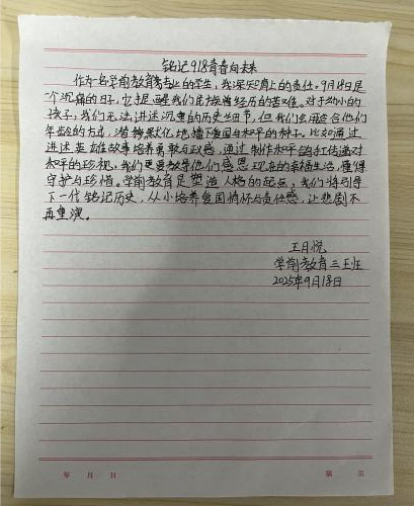 铭记918青春向未来
作为一名学前教育专业的学生，我深知肩上的责任。9月18日是
一个沉痛的日子，它提醒我们民族曾经历的苦难。对于幼小的
孩子，我们无法讲述沉重的历史细节，但我们会用适合他们
年龄的方式，潜移默化地播下爱国与和平的种子。比如通过
讲述英雄故事培养勇敢与正感，通过制作和平鸽手工传递对
和平的珍视。我们更要教导他们感恩现在的幸福生活，懂得
守护与珍惜。学前教育是塑造人格的起点，我们将引导
下一代铭记历史，从小培养爱国情怀与责任感，让悲剧不
再重演。
王月悦
学前教育三王班
2025年9月18日
年 月 日 第 页